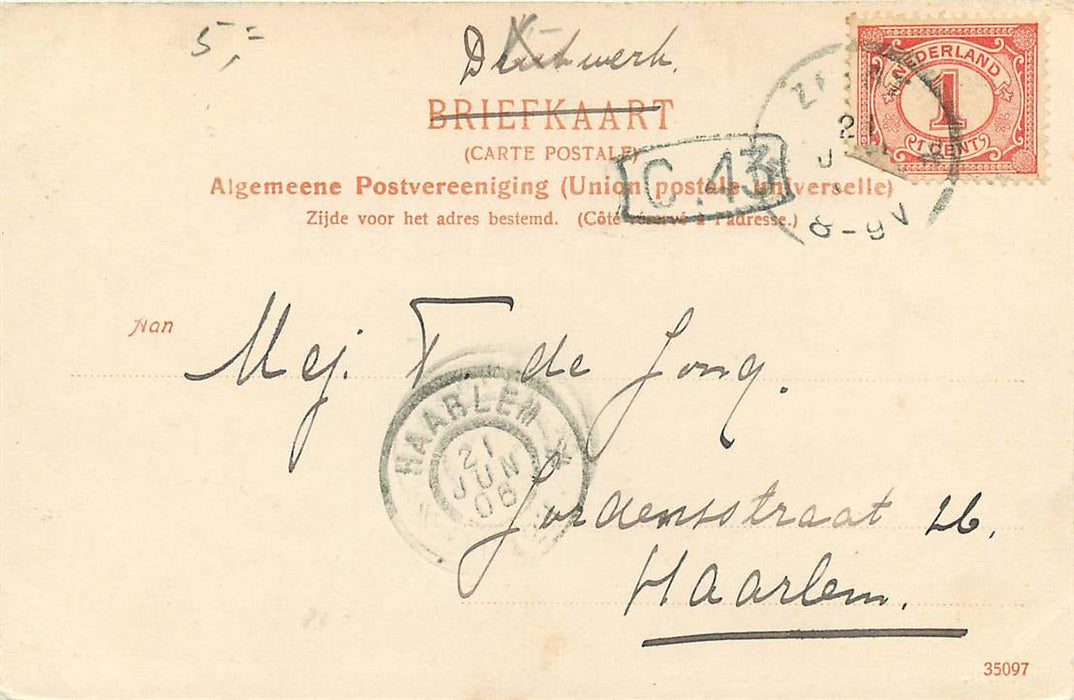 5,=
Drukwerk.
BRIEFKAART
(CARTE POSTALE)
Algemeene Postvereeniging (Union postale universelle)
Zijde voor het adres bestemd. (Côté réservé à l'adresse.)
NEDERLAND
1
1 CENT
C.43
8-9V
Aan
Mej. F. de Jong.
HAARLEM
21
JUN
06
Jordensstraat 26.
Haarlem.
35097